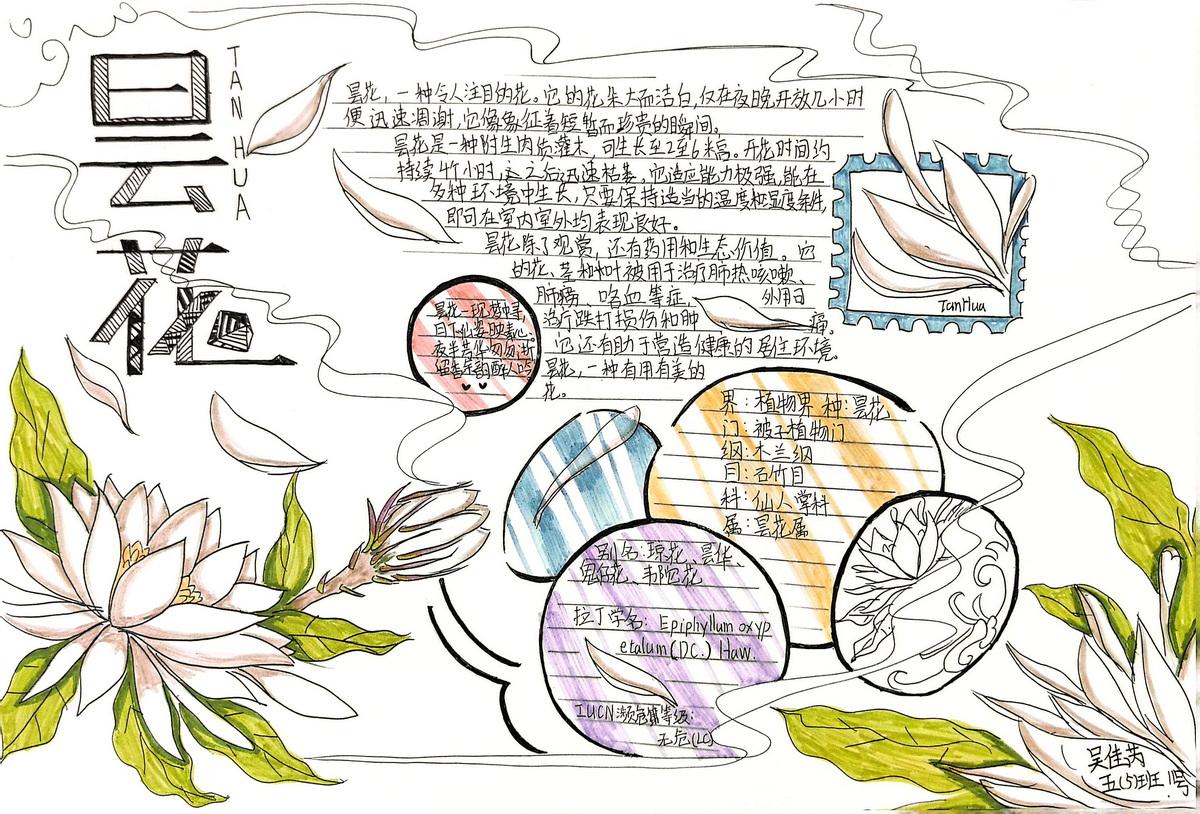 昙花
TANHUA
昙花，一种令人注目的花。它的花朵大而洁白,仅在夜晚开放几小时
便迅速凋谢,它像象征着短暂而珍贵的瞬间。
昙花是一种附生肉质灌木,可生长至2至6米高。开花时间约
持续4个小时,之后迅速枯萎,它适应能力极强,能在
多种环境中生长,只要保持适当的温度和湿度条件,
即可在室内室外均表现良好。
昙花除了观赏,还有药用和生态价值。它
的花、茎和叶被用于治疗肺热咳嗽、
肺痨、咯血等症 外用日
治疗跌打损伤和肿痛。
它还有助于营造健康的居住环境。
昙花,一种有用有美的
花。
昙花一现梦中寻,
月下仙姿映素心。
夜半芳华匆匆逝
留香余韵醉人吟
TanHua
界:植物界 种:昙花
门:被子植物门
纲:木兰纲
目:石竹目
科:仙人掌科
属:昙花属
别名:琼花、昙华、
鬼仔花、韦陀花
拉丁学名: Epiphyllum oxyp
etalum(DC.) Haw.
IUCN濒危等级:
无危(LC)
吴佳芮
五(5)班 11号